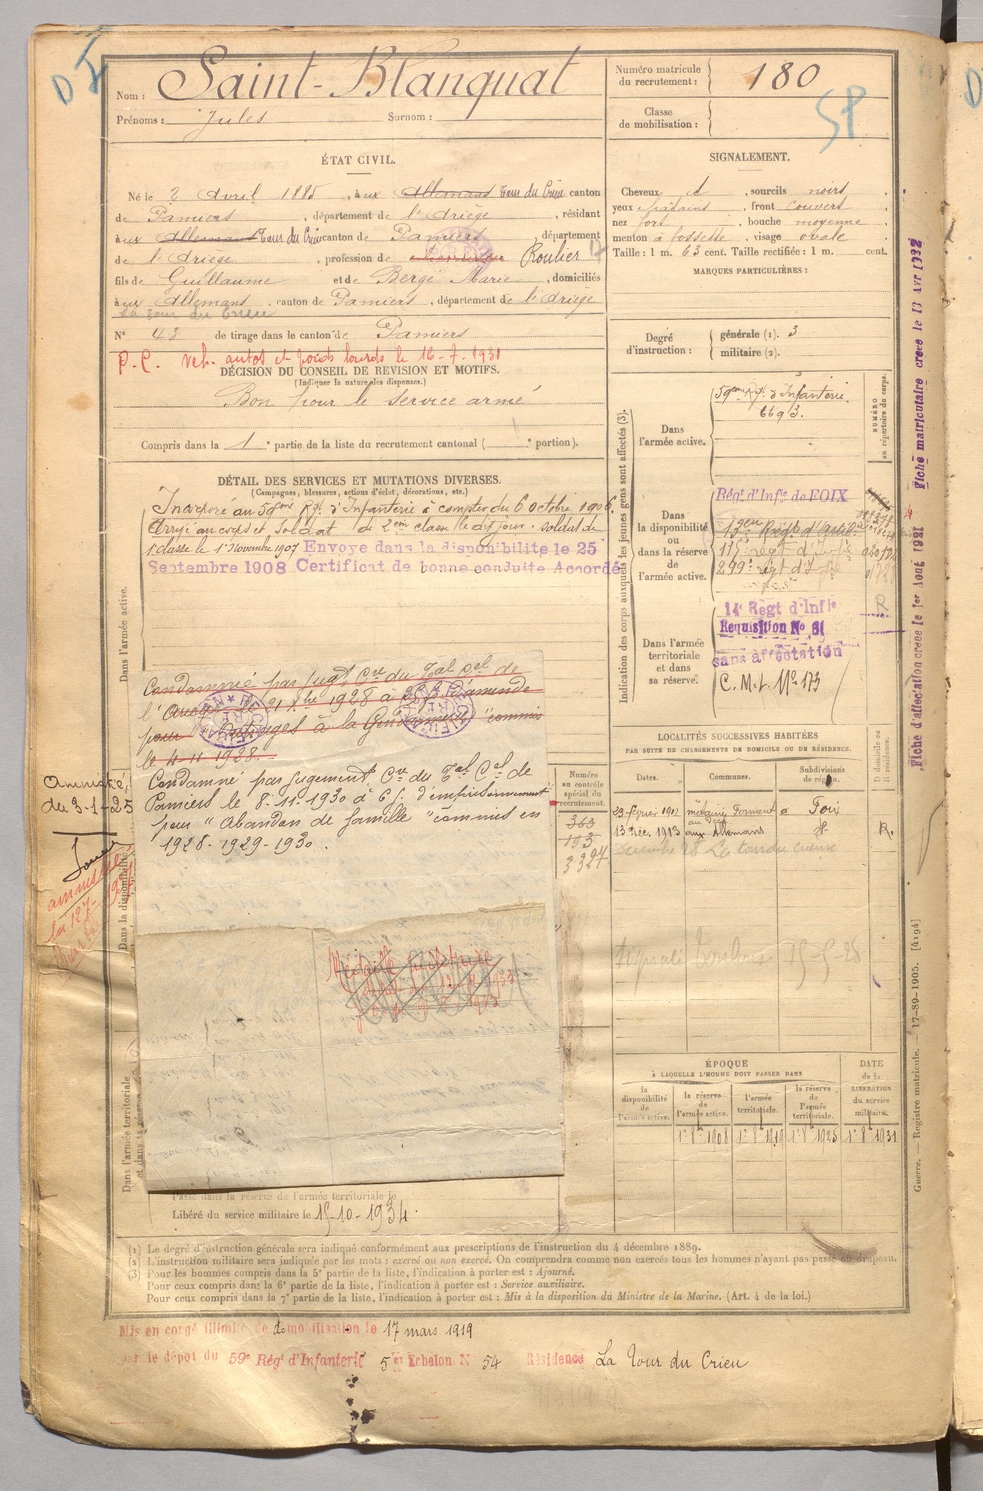 DI
Nom : Saint-Blanquat
Prénoms : Jules Surnom :
Numéro matricule du recrutement : 180
Classe de mobilisation :
SP
ÉTAT CIVIL.
Né le 2 Avril 1885, à ux Allemans Tour du Crieu canton
de Pamiers, département de l'Ariège, résidant
à ux Allemans Tour du Crieu canton de Pamiers, département
de l'Ariège, profession de Roulier
fils de Guillaume et de Bergé Marie, domiciliés
à ux Allemans, canton de Pamiers, département de l'Ariège
La Tour du Crieu
N° 43 de tirage dans le canton de Pamiers
P.C. veh. autos et poids lourds le 16-7-1931
DÉCISION DU CONSEIL DE REVISION ET MOTIFS.
(Indiquer la nature des dispenses.)
Bon pour le service armé
Compris dans la 1e partie de la liste du recrutement cantonal ( e portion).
SIGNALEMENT.
Cheveux d, sourcils noirs
yeux chatains, front couvert
nez fort, bouche moyenne
menton à fossette, visage ovale
Taille : 1 m. 63 cent. Taille rectifiée : 1 m. cent.
MARQUES PARTICULIÈRES :
Degré d'instruction : générale (1). 3
militaire (2).
DÉTAIL DES SERVICES ET MUTATIONS DIVERSES.
(Campagnes, blessures, actions d'éclat, décorations, etc.)
Dans l'armée active.
Incorporé au 59ème Rgt d'Infanterie à compter du 6 octobre 1906.
Arrivé au corps et soldat de 2ème classe le dit jour. Soldat de
1e classe le 1er Novembre 1907 Envoyé dans la disponibilité le 25
Septembre 1908 Certificat de bonne conduite Accordé
Condamné par jugt Cel du Tal Cel de
l'
pour "Outrages à la Gendarmerie" commis
le 4-11-1928.
Condamné par jugement Cel du Tal Cel de
Pamiers le 8-11-1930 à 6 j. d'emprisonnement
pour "Abandon de famille" commis en
1928-1929-1930.
Amnistié
du 3-1-25
Dans la disponibilité
Dans l'armée territoriale
et dans sa réserve
Passé dans la réserve de l'armée territoriale le
Libéré du service militaire le 15-10-1934.
Indication des corps auxquels les jeunes gens sont affectés (3).
NUMÉRO au répertoire du corps.
Dans l'armée active.
59ème Rgt d'Infanterie.
6693.
Dans la disponibilité ou dans la réserve de l'armée active.
Régt d'Infie de FOIX
117e régt d'Infie
299e régt d'Infie
Dans l'armée territoriale et dans sa réserve.
14e Regt d'Infie
Requisition No 31
sans affectation
C.M.I. No 173
R
Numéro au contrôle spécial du recrutement.
363
103
3324
LOCALITÉS SUCCESSIVES HABITÉES
PAR SUITE DE CHANGEMENTS DE DOMICILE OU DE RÉSIDENCE.
Dates. Communes. Subdivisions de région. D domicile ou R résidence.
Foix
13 Déc. 1913 aux Allemans R.
Toulouse 15-5-28
ÉPOQUE
À LAQUELLE L'HOMME DOIT PASSER DANS
la disponibilité de l'armée active.
la réserve de l'armée active.
l'armée territoriale.
la réserve de l'armée territoriale.
DATE de la LIBÉRATION du service militaire.
1er 8bre 1908 1er 8bre 1919 1er 8bre 1925 1er 8bre 1931
Fiche d'affectation créée le 1er Aout 1921 Fiche matriculaire créée le 13 Avr 1932
Guerre. — Registre matricule. — 17-89-1905. [4194]
(1) Le degré d'instruction générale sera indiqué conformément aux prescriptions de l'instruction du 4 décembre 1889.
(2) L'instruction militaire sera indiquée par les mots : exercé ou non exercé. On comprendra comme non exercés tous les hommes n'ayant pas passé au drapeau.
(3) Pour les hommes compris dans la 5e partie de la liste, l'indication à porter est : Ajourné.
Pour ceux compris dans la 6e partie de la liste, l'indication à porter est : Service auxiliaire.
Pour ceux compris dans la 7e partie de la liste, l'indication à porter est : Mis à la disposition du Ministre de la Marine. (Art. 4 de la loi.)
Mis en congé illimité de démobilisation le 17 mars 1919
par le dépôt du 59e Régt d'Infanterie 5er Echelon N° 54 Résidence La Tour du Crieu